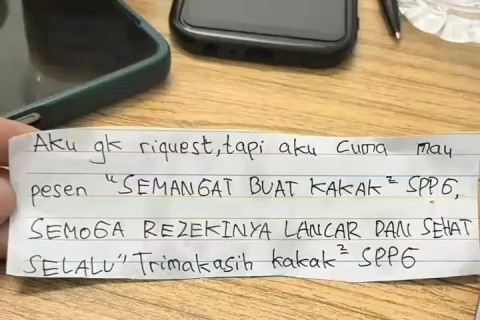 Aku gk riquest, tapi aku cuma mau
pesen "SEMANGAT BUAT KAKAK² SPPG,
SEMOGA REZEKINYA LANCAR DAN SEHAT
SELALU" Trimakasih kakak² SPPG